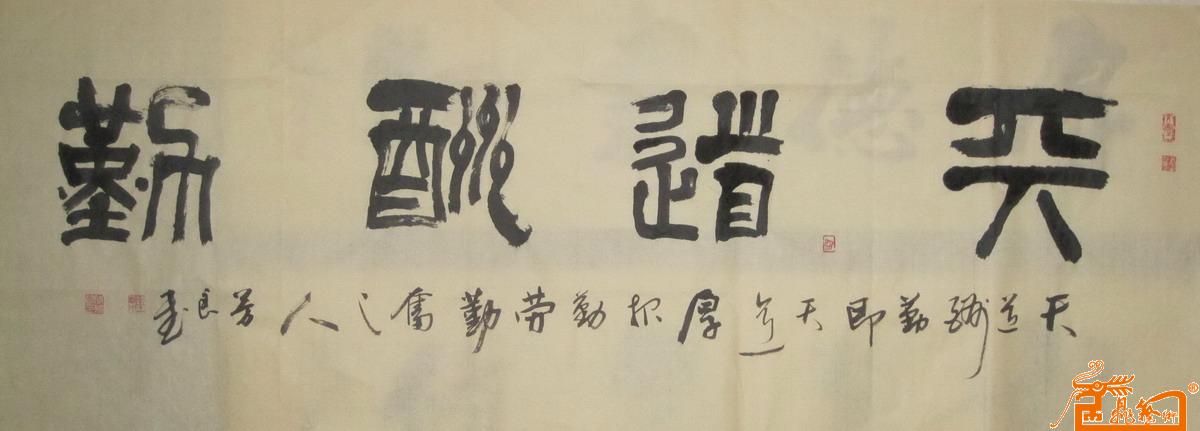 天道酬勤
天道酬勤即天道厚报勤劳勤奮之人芳良书